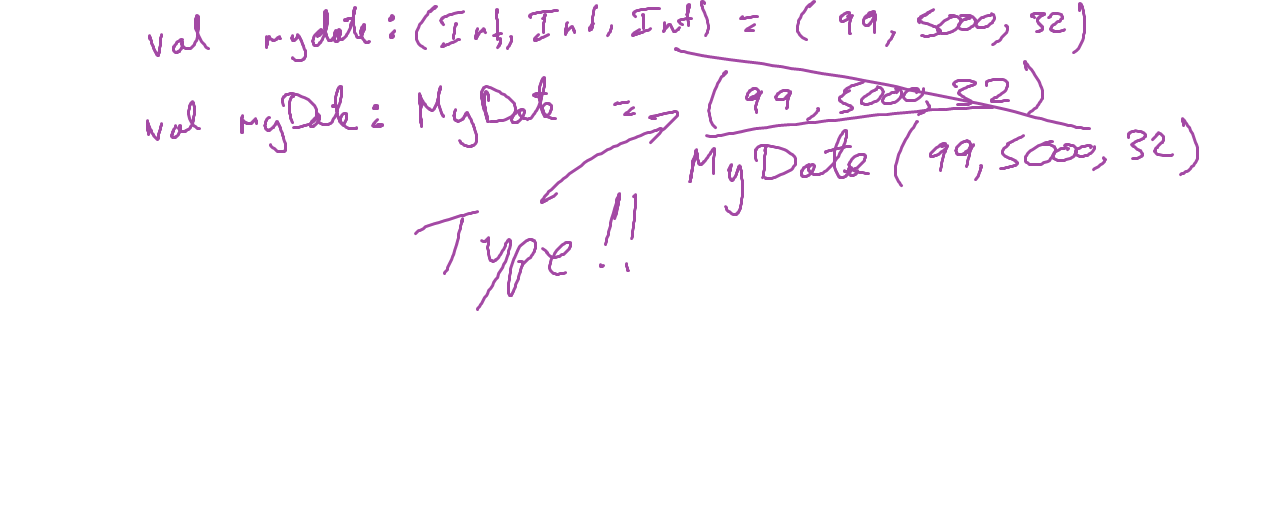 val mydate : (Int, Int, Int) = (99, 5000, 32)
val myDate : MyDate = (99, 5000, 32)
MyDate (99, 5000, 32)
Type!!